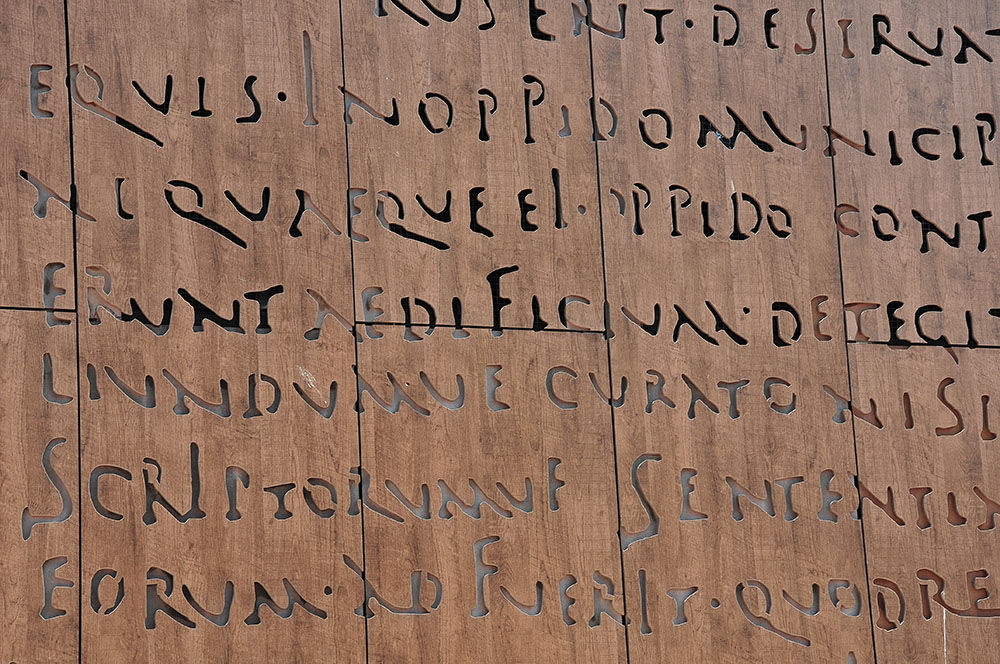 RVSENT·DESTRVA
EQVIS·IN OPPIDO MVNICIP
NI QVAEQVE EI·OPPIDO CONT
ERVNT AEDIFICIVM·DETEGIT
LIVNDVMVE CVRATO NISI
SCRIPTORVMVE SENTENTIA
EORVM·ADFVERIT·QVOD RE